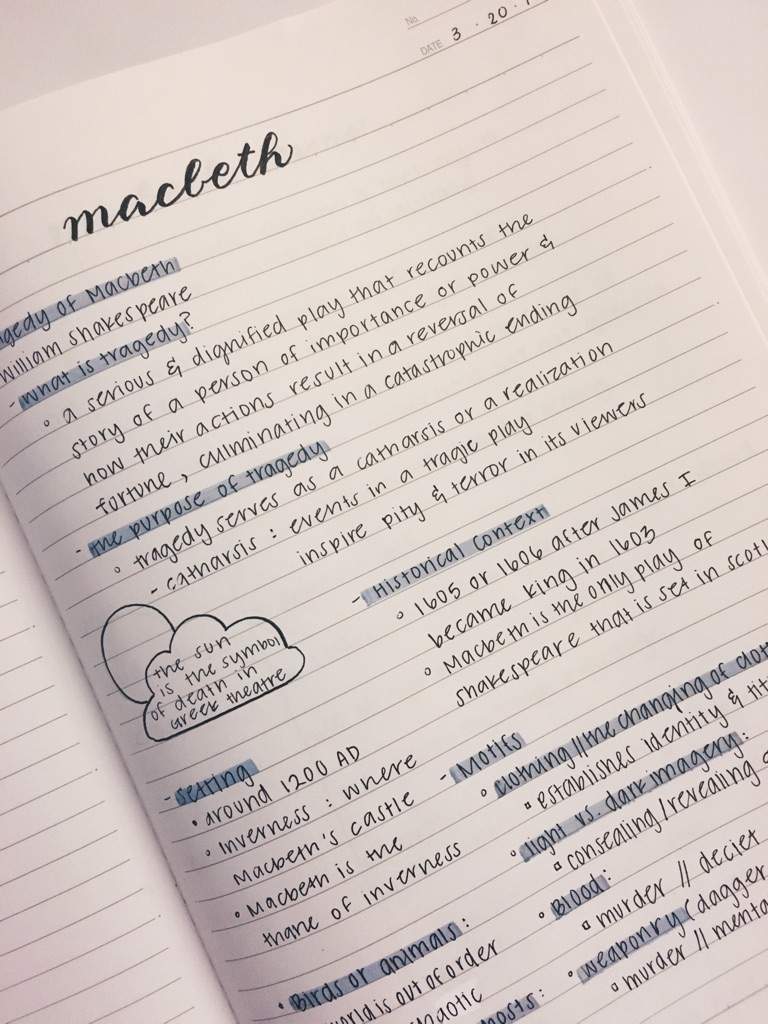 No.
DATE 3 . 20 .
macbeth
Tragedy of Macbeth
William Shakespeare
- what is tragedy?
◦ a serious & dignified play that recounts the
story of a person of importance or power &
how their actions result in a reversal of
fortune, culminating in a catastrophic ending
- the purpose of tragedy
◦ tragedy serves as a catharsis or a realization
- catharsis : events in a tragic play
inspire pity & terror in its viewers
- Historical Context
◦ 1605 or 1606 after James I
became king in 1603
◦ Macbeth is the only play of
Shakespeare that is set in
the sun
is the symbol
of death in
Greek theatre
- Setting
• around 1200 AD
◦ Inverness : where
Macbeth's castle
• Macbeth is the
thane of Inverness
- Motifs
◦ clothing//the changing of
▫ establishes identity &
◦ light vs. dark imagery:
▫ consealing/revealing
• Blood:
▫ murder // deciet
• weaponry (dagger,
▫ murder //
• Birds or animals:
world is out of order